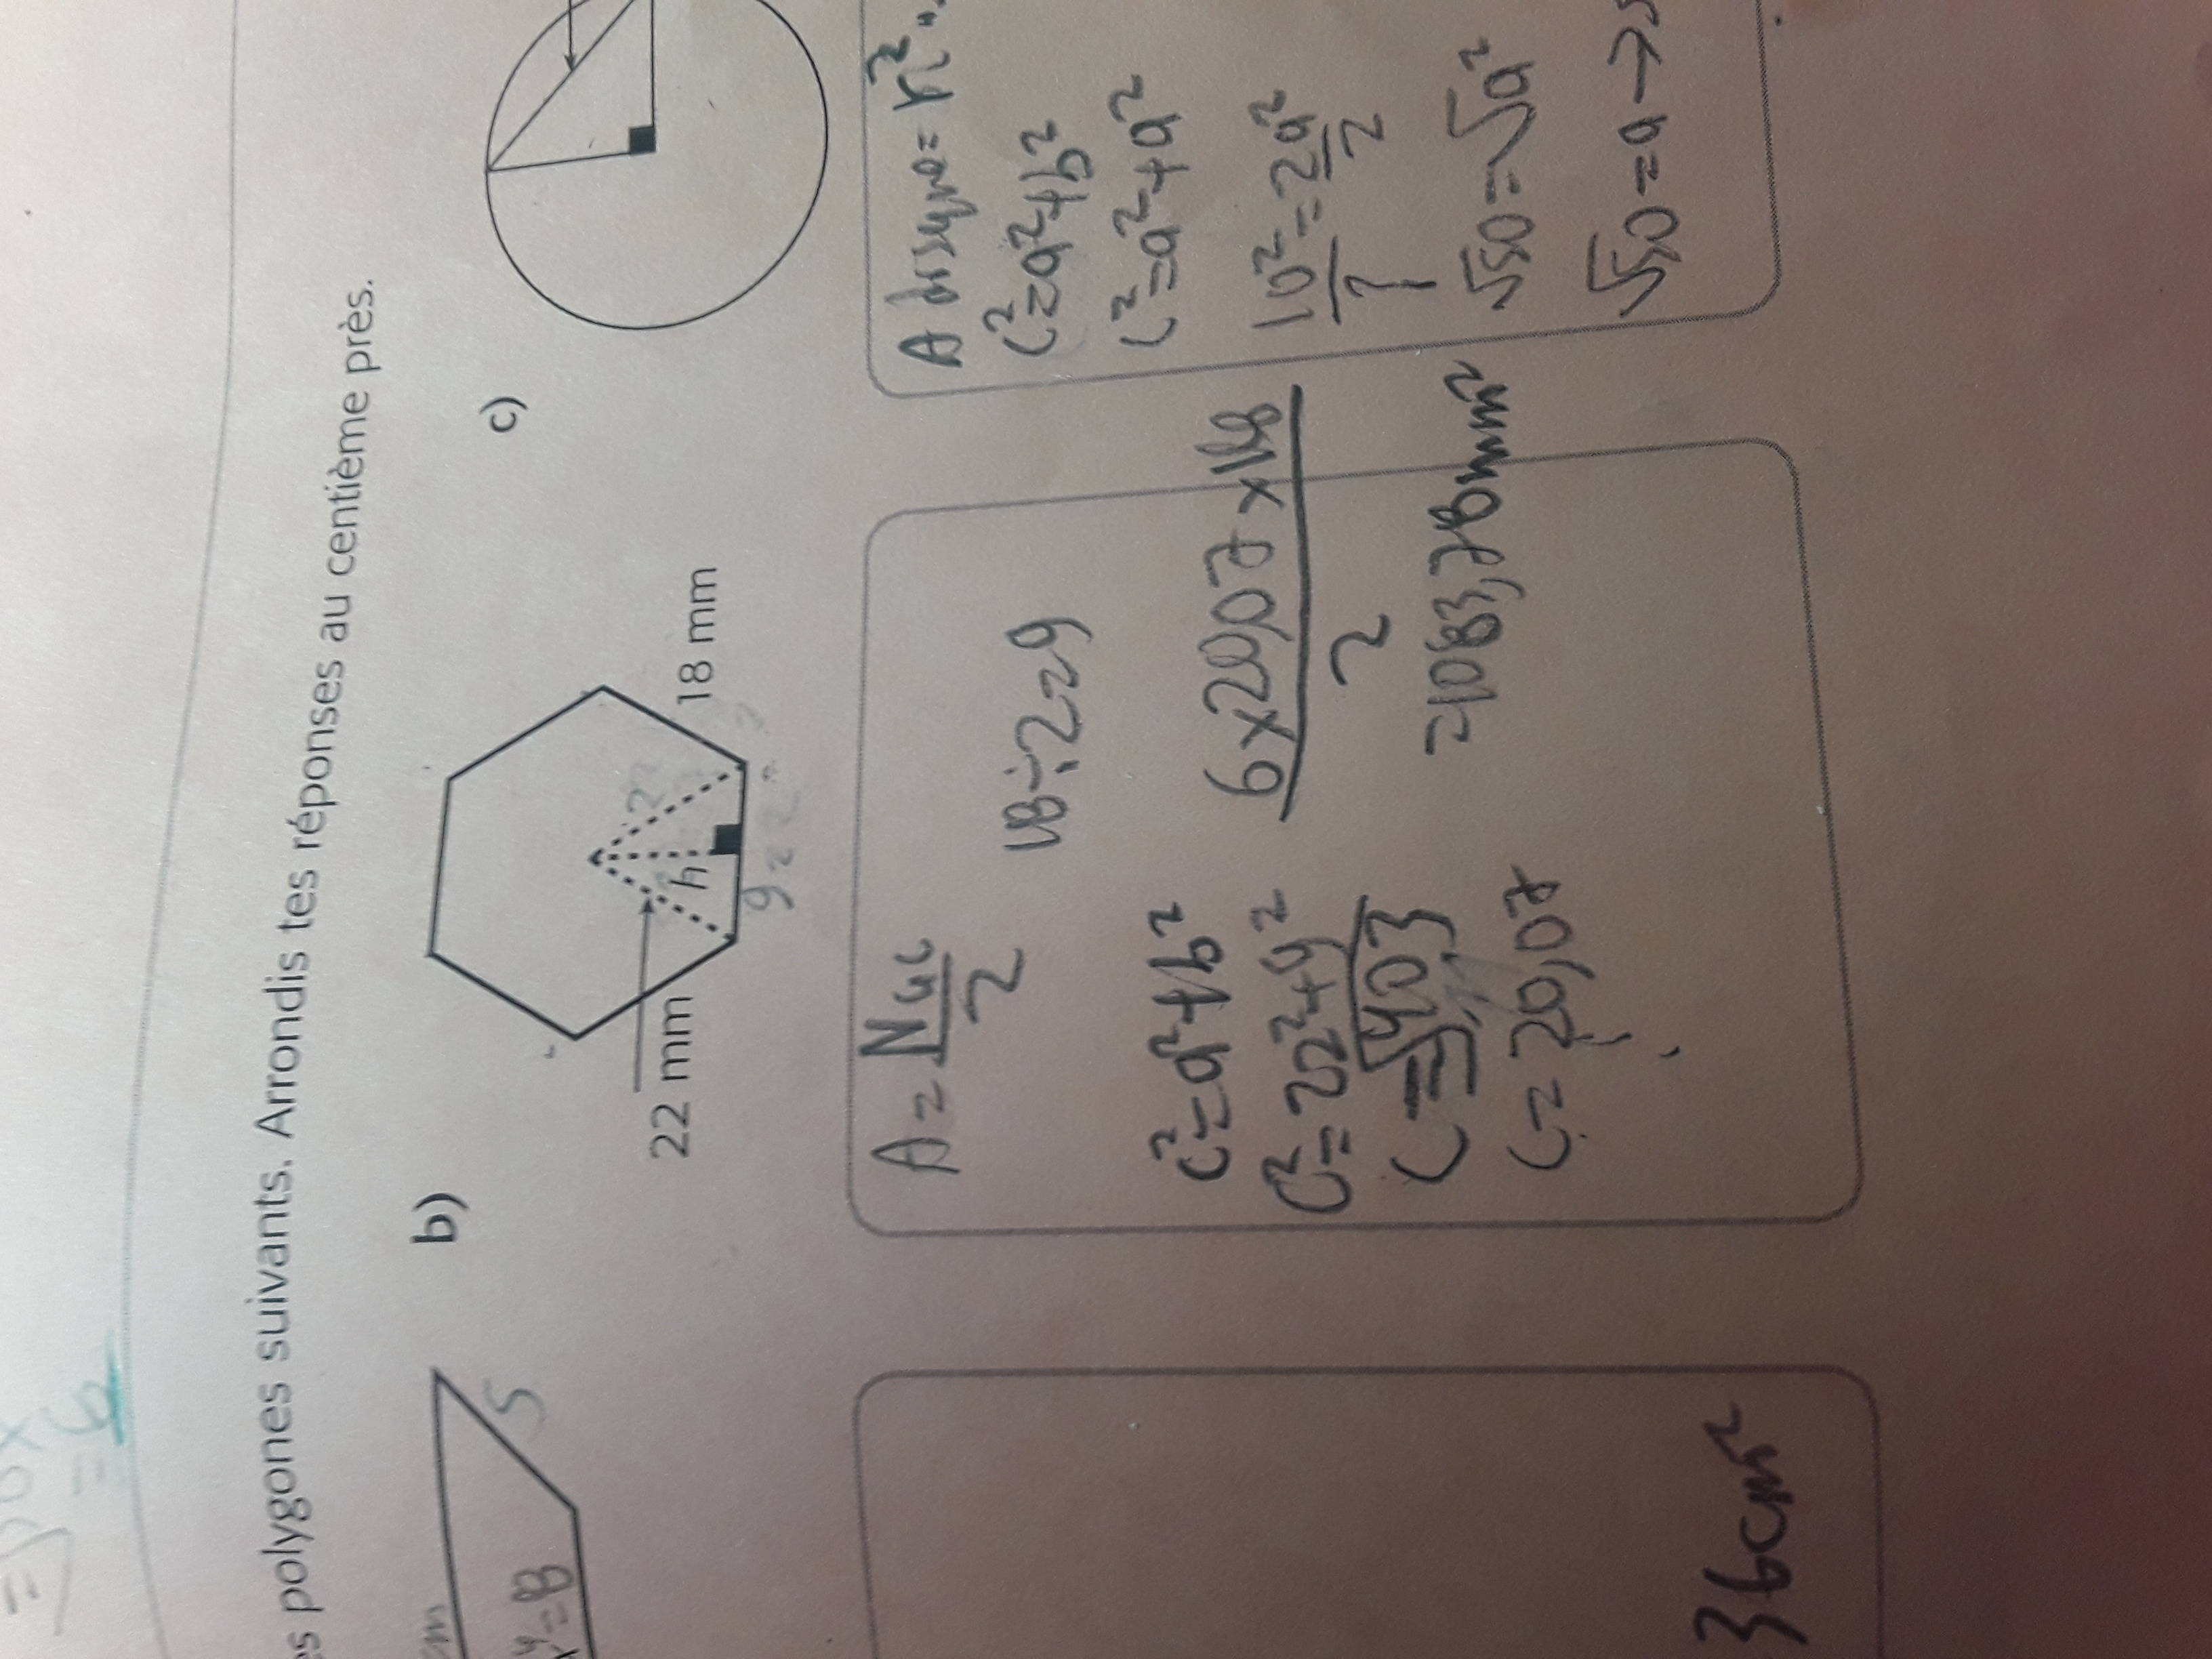 es polygones suivants. Arrondis tes réponses au centième près.
cm
=8
5
36cm²
b)
22 mm
h
22
18 mm
9
A = nac/2
18÷2=9
c²=a²+b²
c²=22²+9²
c=√403
c=20,07
6×20,07×18/2
=1083,78mm²
c)
A disque=
c²=a²+b²
c²=a²+a²
10²/2=2a²/2
√50=√a²
√50=a→